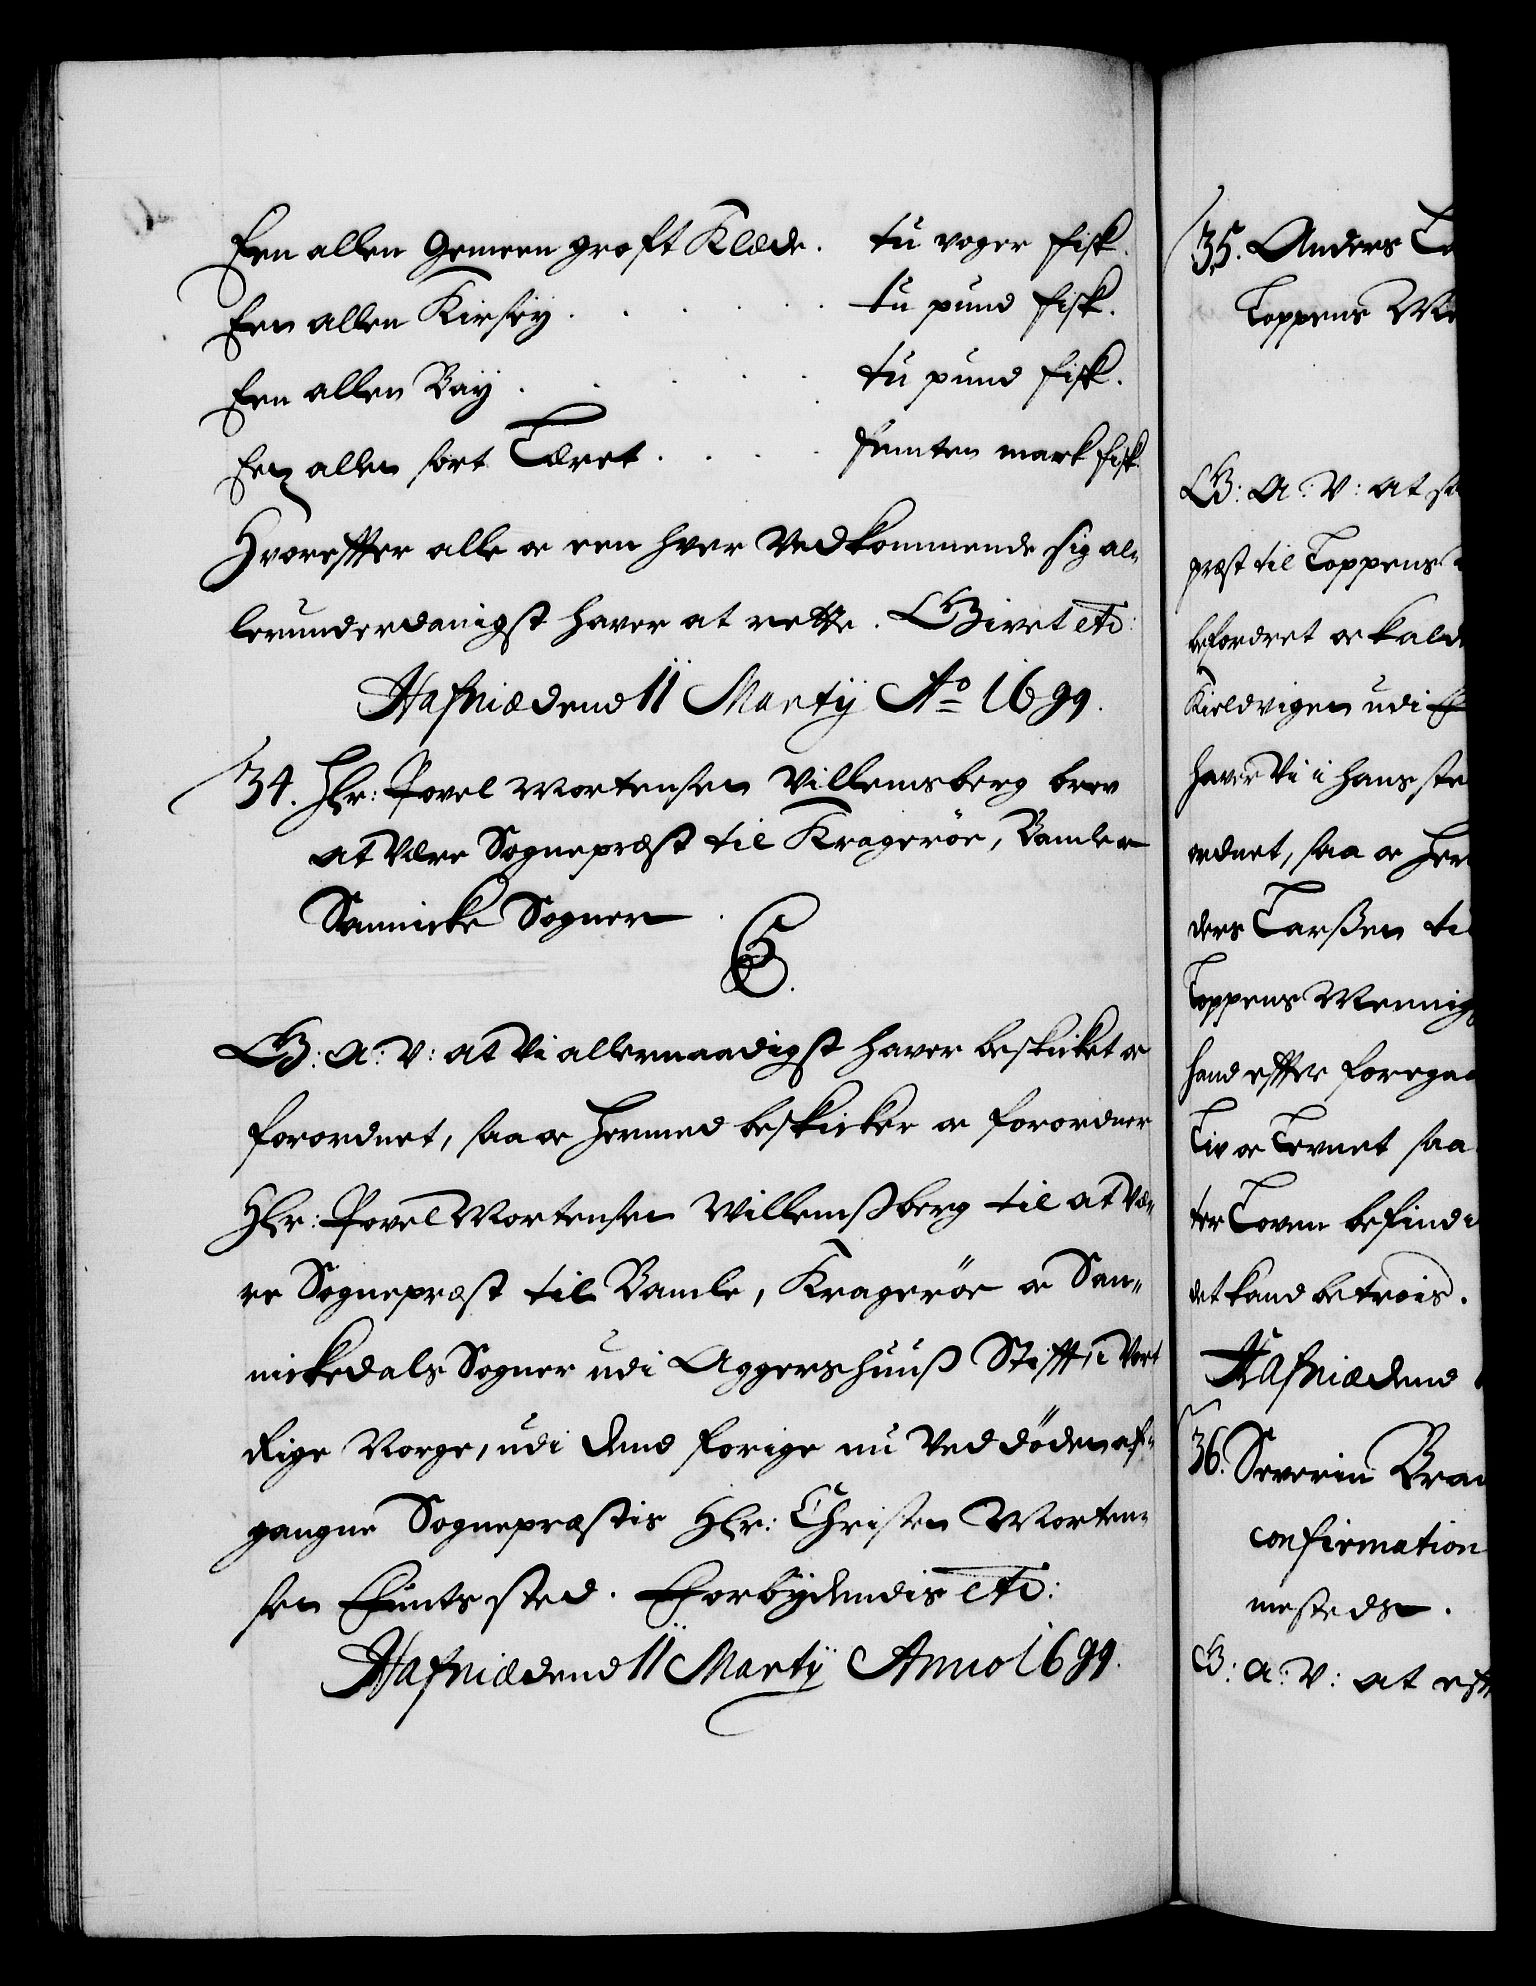 Een allen Gemeen groft Klæde. tu voger fisk.
Een allen Kirsøy . . . . . tu pund fisk.
Een allen Bay . . . . . tu pund fisk.
Een allen sort Læret . . . . femten mark fisk
Hvorefter alle oc een hver Vedkommende sig al-
lerunderdanigst haver at rette. Givet etc:
Hafniæ dend 11 Martÿ Ao 1699.
34. Hlr: Povel Mortensen Villemsberg brev
at være Sognepræst til Kragerøe, Bamle oc
Sannicke Sogner
C5.
G: A: V: at Vi allernaadigst haver beskicket oc
forordnet, saa oc hermed beskicker oc forordner
Hlr: Povel Mortensen Willemsberg til at væ-
re Sognepræst til Bamle, Kragerøe oc San-
nickedals Sogner udi Aggershuuß Stifft, i Vort
Rige Norge, udi dend forige nu Ved døden af-
gangne Sognepræstis Hlr: Christen Morten-
sen sted. Forbydendis etc:
Hafniæ dend 11 Martÿ Anno 1699.
35. Anders
Loppens
G: A: V: at
præst til Loppens
befordret oc kald
Kieldvigen udi
haver Vi i hans ste
ordnet, saa oc her
ders Larßen ti
Loppens Mennig
hand effter forega
Liv oc Levnet saa
ter Loven befind
det kand betrois.
Hafniæ dend
36. Severin
confirmation
mesteds.
G: A: V: at eft